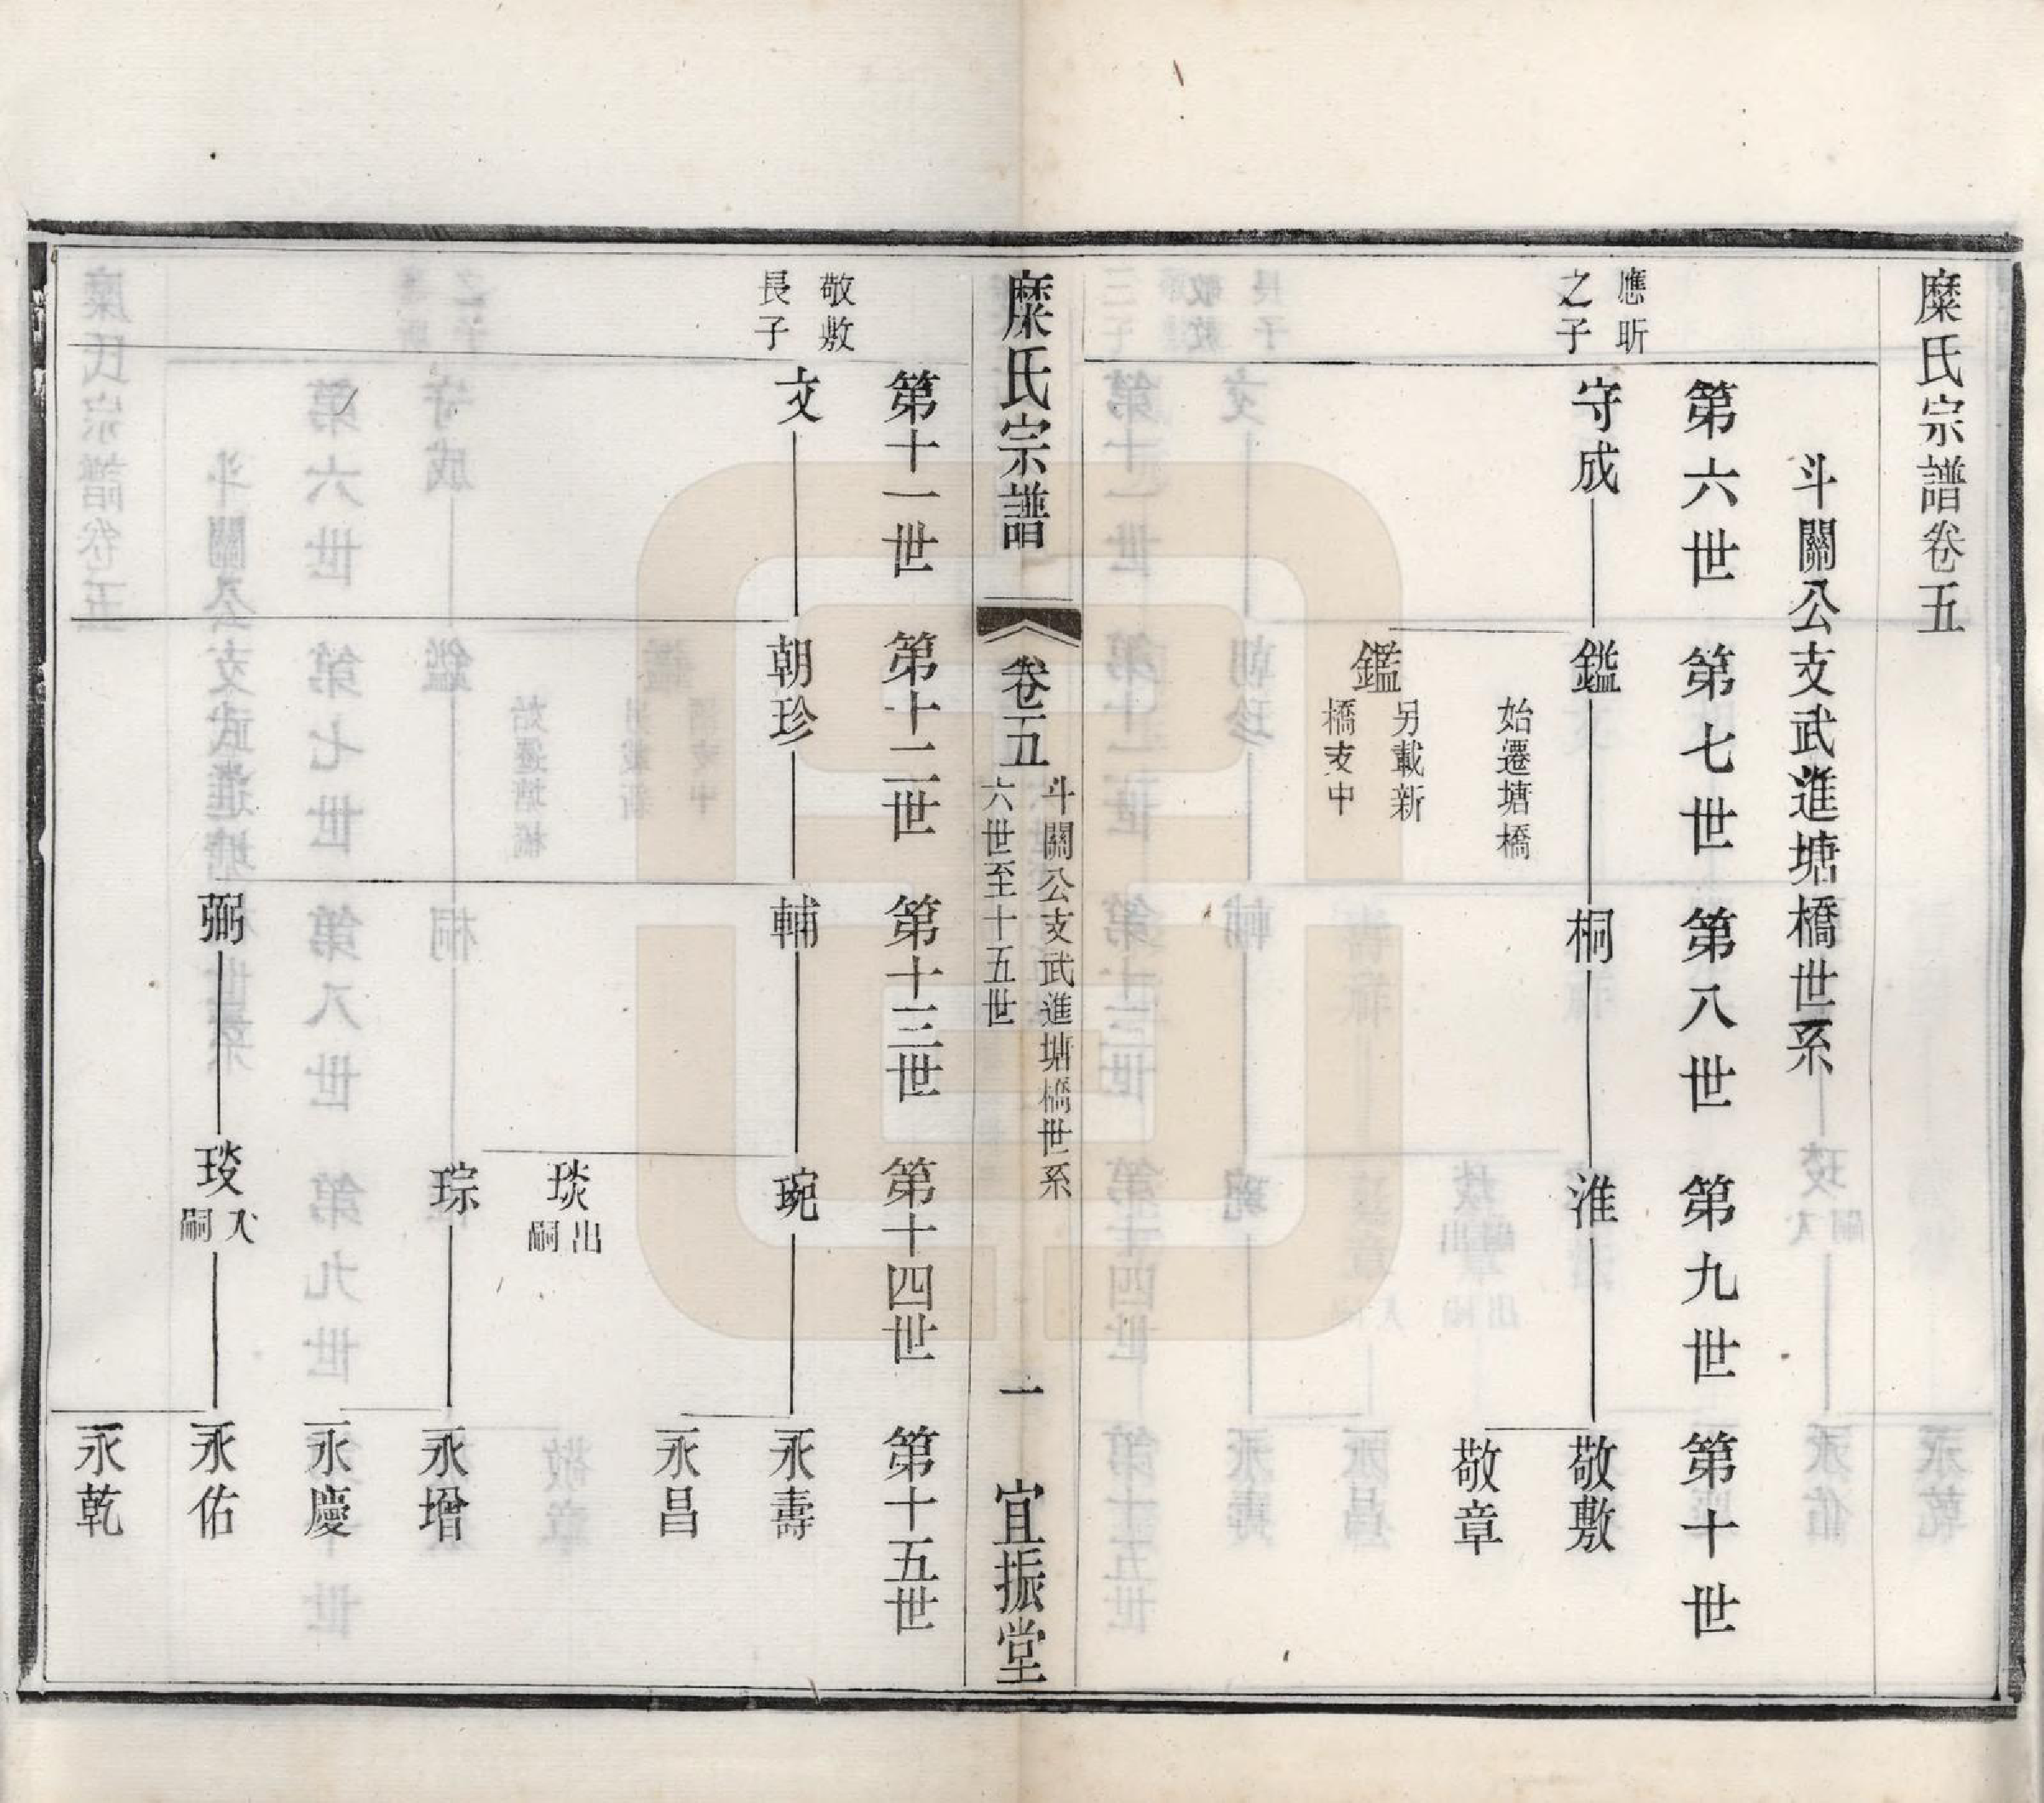 糜氏宗譜卷五
斗關公支武進塘橋世系
第六世　第七世　第八世　第九世　第十世
應昕
之子
守成　鑑　桐　淮　敬敷
始遷塘橋
敬章
鑑
另載新
橋支中
糜氏宗譜
卷五
斗關公支武進塘橋世系
六世至十五世
一
宜振堂
第十一世　第十二世　第十三世　第十四世　第十五世
敬敷
長子
文　朝珍　輔　琬　永壽
永昌
琰
出
嗣
琮　永增
永慶
弼　琰
入
嗣
永佑
永乾